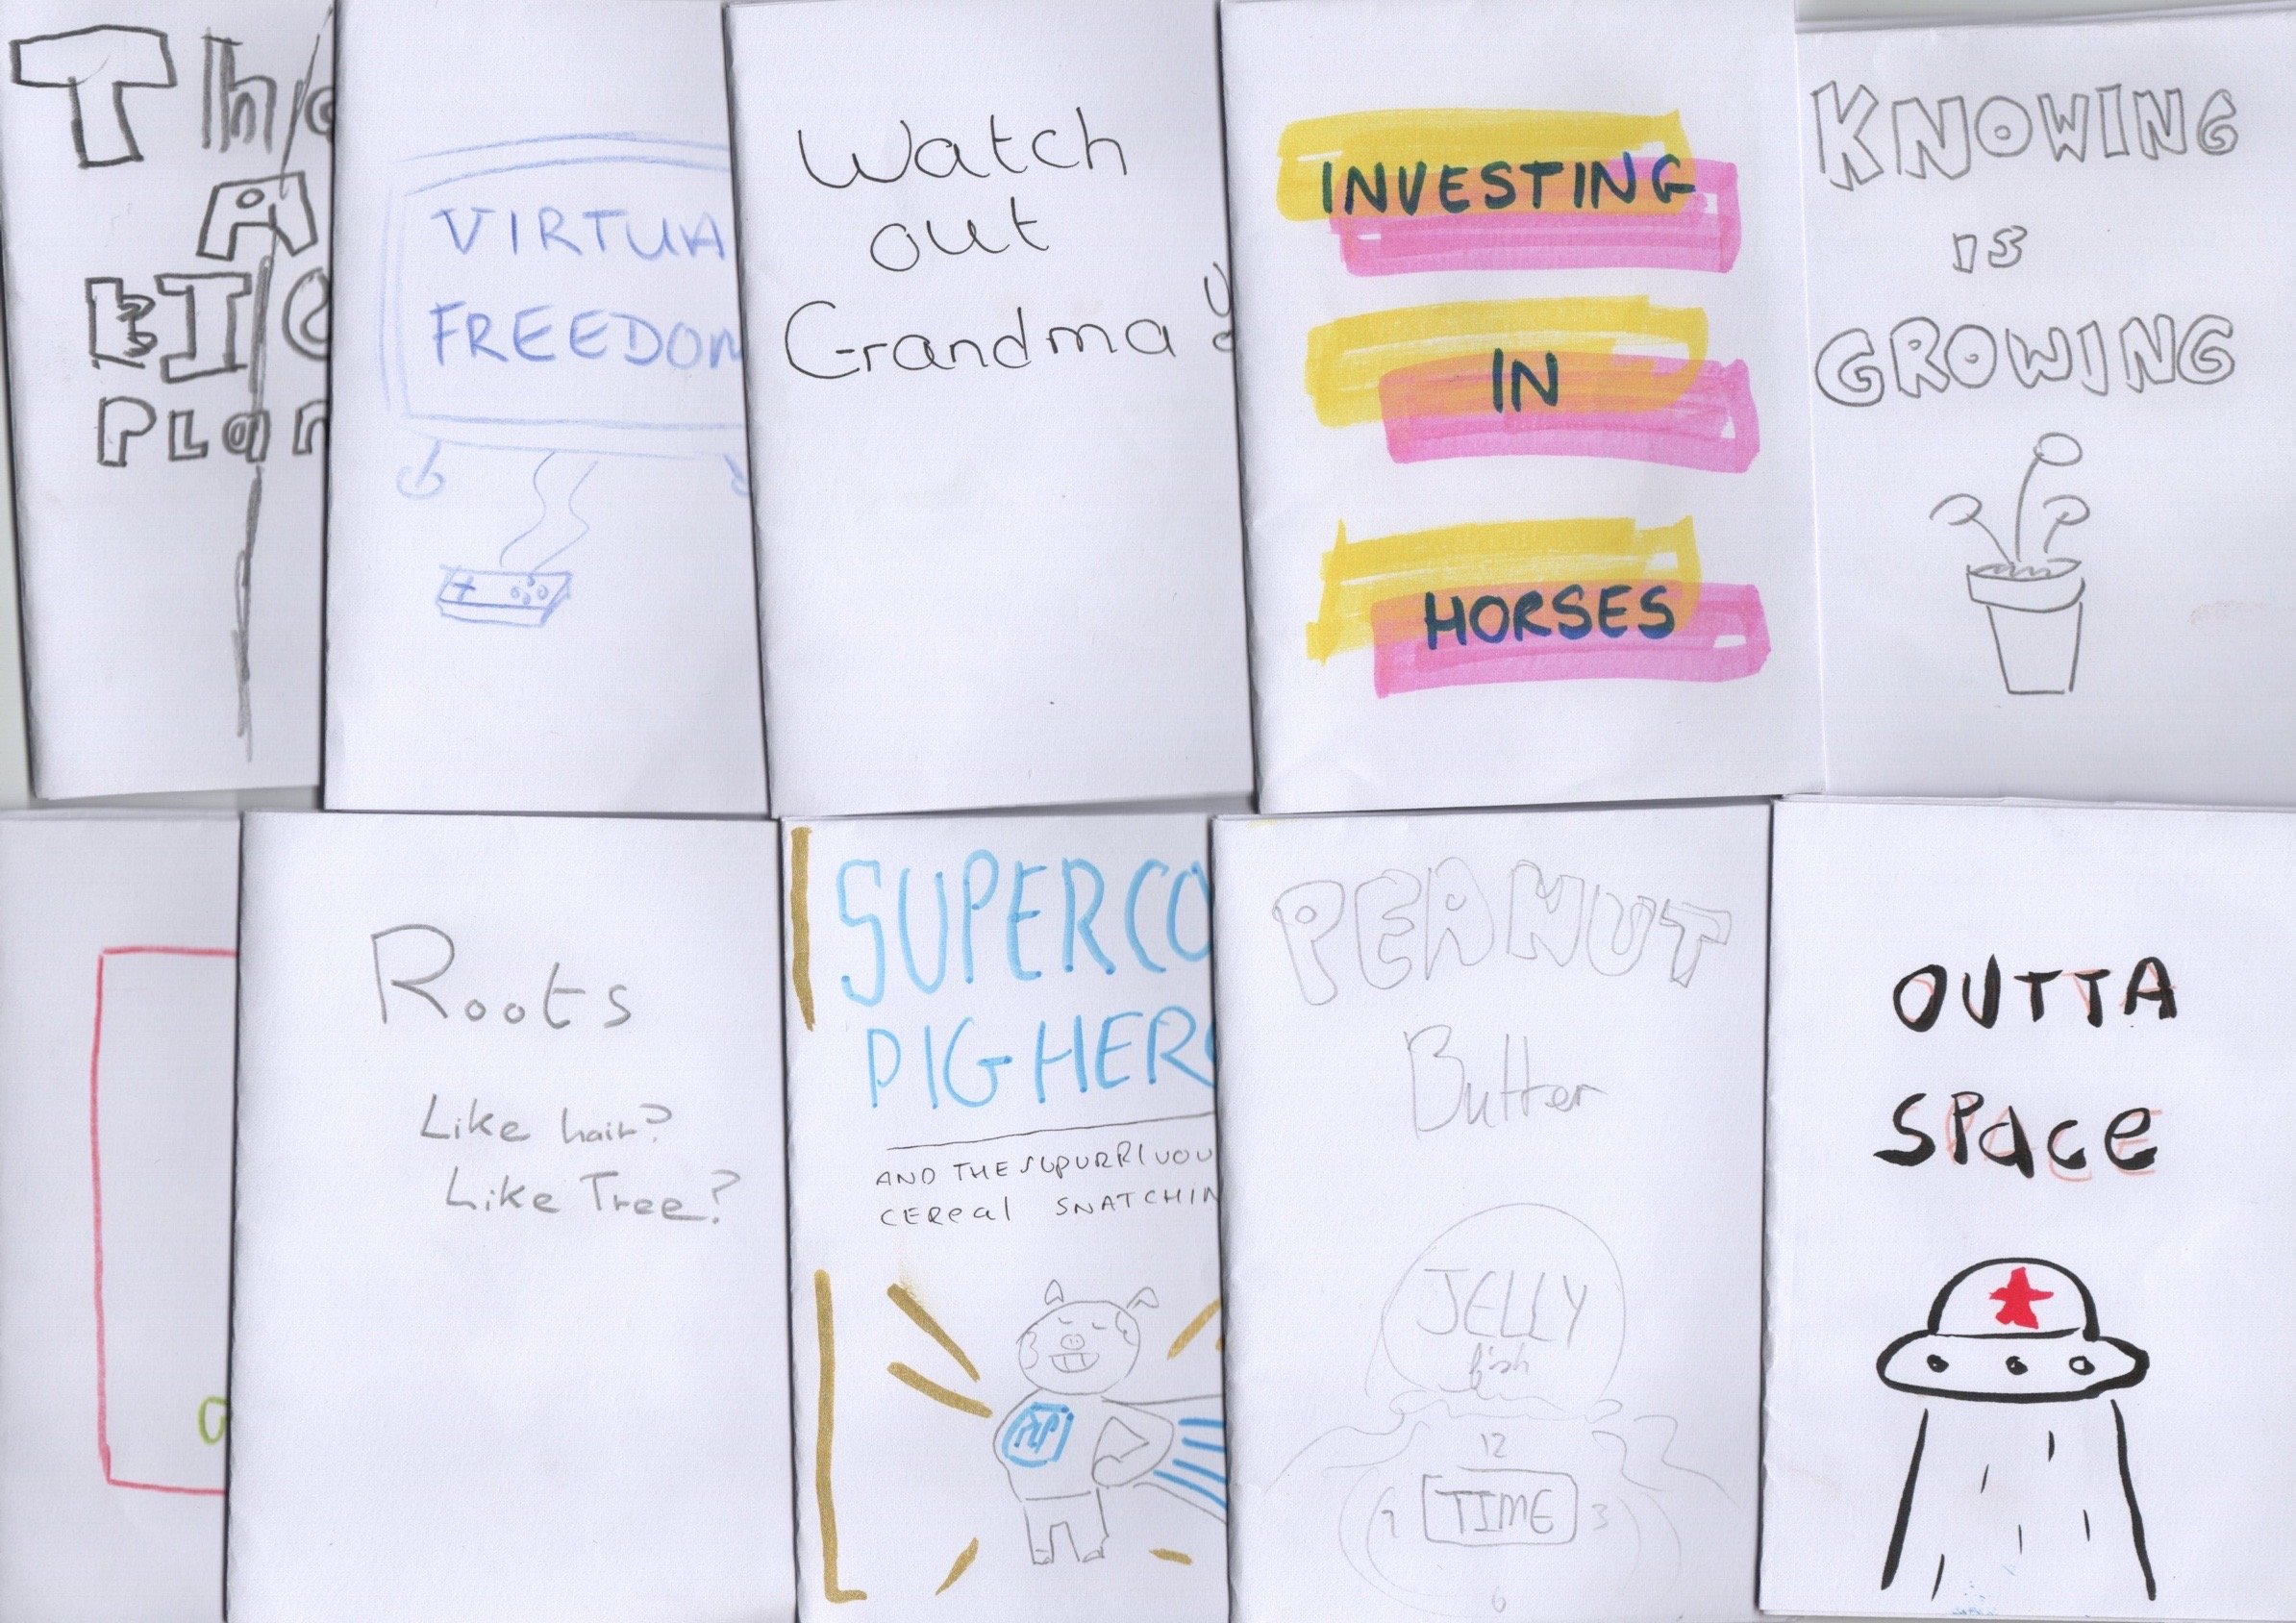 The
A
BIG
Plan
VIRTUA
FREEDOM
Watch
out
Grandma
INVESTING
IN
HORSES
KNOWING
IS
GROWING
Roots
Like hair?
Like Tree?
SUPERCO
PIG HERO
AND THE SUPURRIVOU
CEREAL SNATCHIN
PEANUT
Butter
JELLY
fish
12
9 TIME 3
6
OUTTA
SPACE